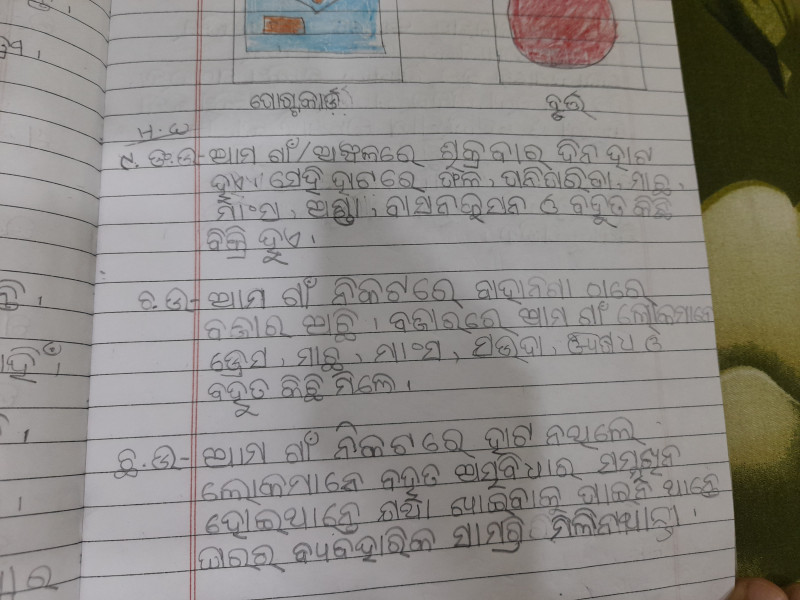 ପୋଷ୍ଟକାର୍ଡ଼ ବୃତ୍ତ
H.W
୯. ଙ.ଉ- ଆମ ଗାଁ/ଅଞ୍ଚଳରେ ଶୁକ୍ରବାର ଦିନ ହାଟ
ହୁଏ। ସେହି ହାଟରେ ଫଳ, ପନିପରିବା, ମାଛ,
ମାଂସ, ଅଣ୍ଡା, ବାସନକୁସନ ଓ ବହୁତ କିଛି
ବିକ୍ରି ହୁଏ।
ଚ.ଉ- ଆମ ଗାଁ ନିକଟରେ ବାହାନଗା ଠାରେ
ବଜାର ଅଛି। ବଜାରରେ ଆମ ଗାଁ ଲୋକମାନେ
ଡ୍ରେସ, ମାଛ, ମାଂସ, ସଉଦା, ଔଷଧ ଓ
ବହୁତ କିଛି ମିଳେ।
ଛ.ଉ- ଆମ ଗାଁ ନିକଟରେ ହାଟ ନଥିଲେ
ଲୋକମାନେ ବହୁତ ଅସୁବିଧାର ସମ୍ମୁଖୀନ
ହୋଇଥାନ୍ତେ ଖାଦ୍ୟ ଖାଇବାକୁ ପାଇନଥାନ୍ତେ
ଘରର ବ୍ୟବହାରିକ ସାମଗ୍ରୀ ମିଳିନଥାନ୍ତା।